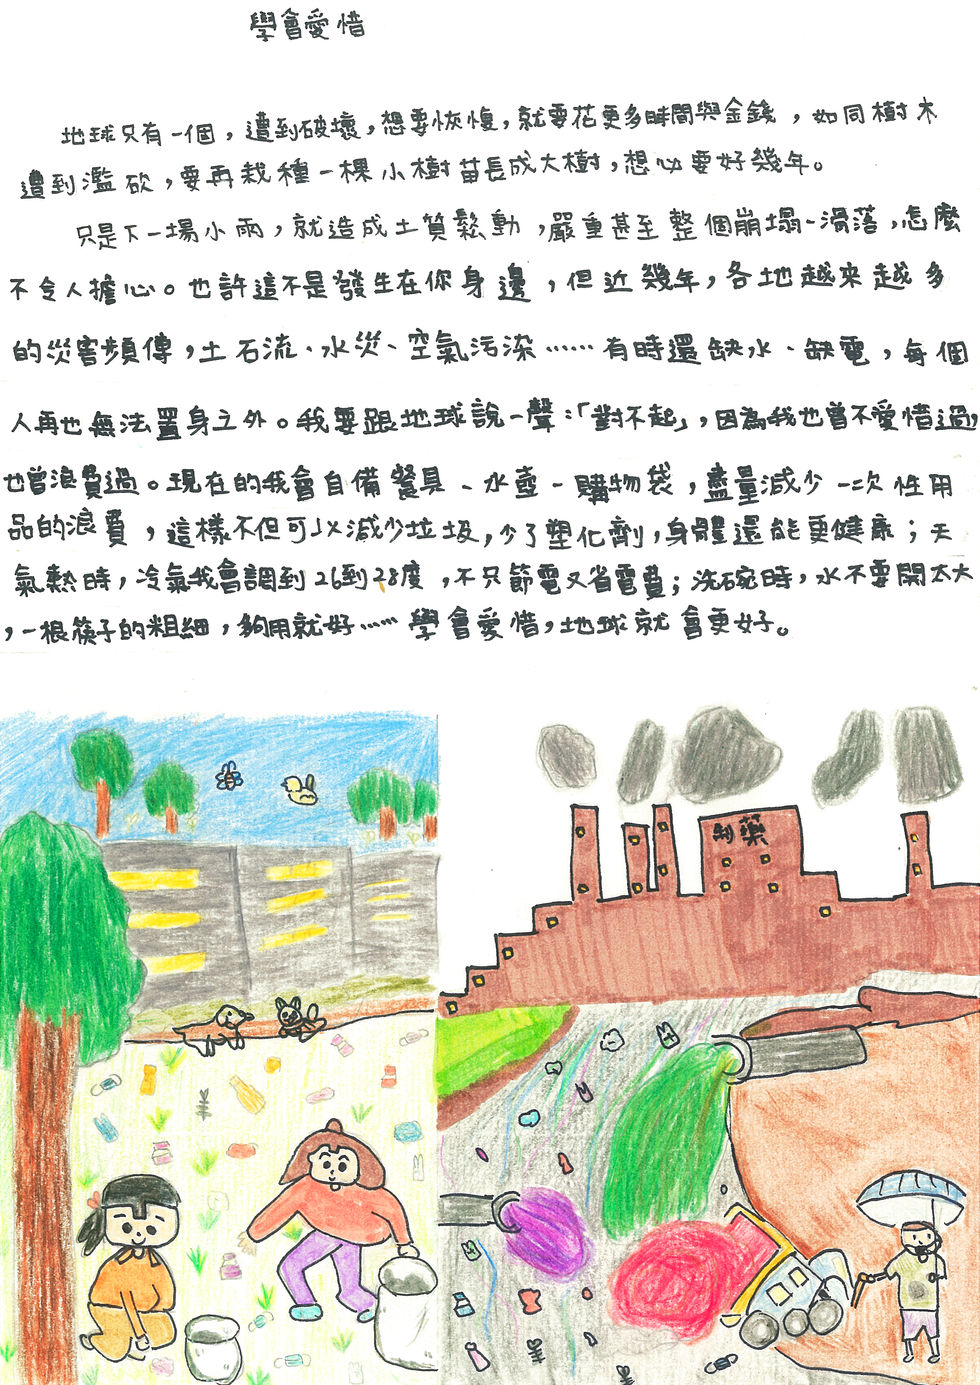 學會愛惜
地球只有一個，遭到破壞，想要恢愎，就要花更多時間與金錢，如同樹木
遭到濫砍，要再栽種一棵小樹苗長成大樹，想必要好幾年。
只是下一場小雨，就造成土質鬆動，嚴重甚至整個崩塌、滑落，怎麼
不令人擔心。也許這不是發生在你身邊，但近幾年，各地越來越多
的災害頻傳，土石流、水災、空氣污染……有時還缺水、缺電，每個
人再也無法置身之外。我要跟地球說一聲：「對不起」，因為我也曾不愛惜過，
也曾浪費過。現在的我會自備餐具、水壺、購物袋，盡量減少一次性用
品的浪費，這樣不但可以減少垃圾，少了塑化劑，身體還能更健康；天
氣熱時，冷氣我會調到26到28度，不只節電又省電費；洗碗時，水不要開太大
，一根筷子的粗細，夠用就好……學會愛惜，地球就會更好。
製藥